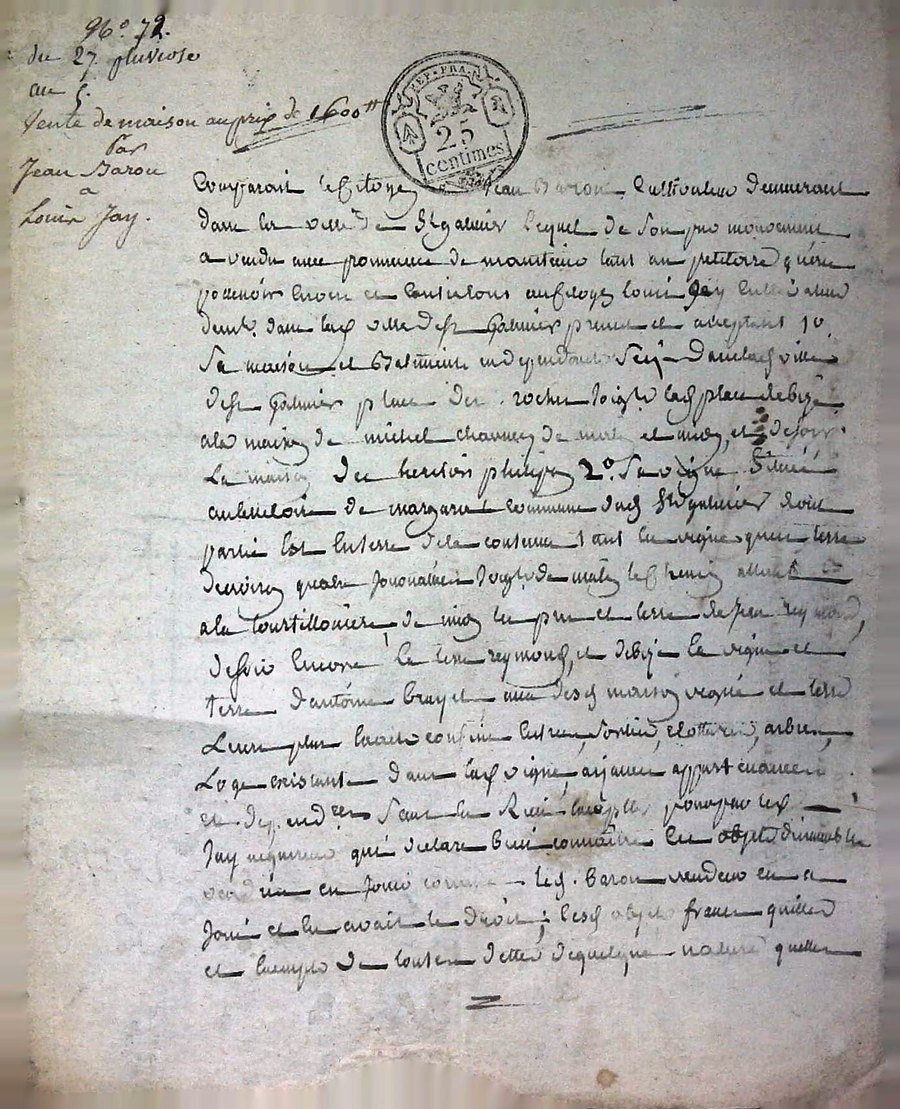 N° 72.
du 27 pluviose
an 5.
Vente de maison au prix de 1600 tt
par
Jean Baron
a
Louis Jay.
REP. FRA.
25
centimes
Comparait le Citoyen Jean Baron Cultivateur demeurant
dans la ville de St galmier lequel de son pur mouvement
a vendu avec promesse de maintenir tant au petitoire qu'en
possessoire envers et contre tous au Citoyen louis Jay Cultivateur
demt. dans lad ville de St Galmier present et acceptant 1°.
Sa maison et Batiment independants Scize dans lad ville
de St Galmier place des roches joigt lad place de bize
a la maison de michel de matin et midy, et de soir
La maison des heritiers philipon 2°. Sa vigne Située
au territoire de commune dud St Galmier dont
partie est en terre de la contenue tant en vigne qu'en terre
d'environ quatre journaliers joigt de matin le Chemin allant
a la tourtillonière, de midy les pré et terre de Jean reymond,
de soir encore la terre reymond, et de bize la vigne et
terre d'antoine avec desd maison vigne et terre
Leurs plus entrées, sorties, clotures, arbres,
Loge existante dans lad vigne aizances appartenances
et dependces Sans en Rien pour par led
Jay acquereur qui declare bien connaitre les objets
vendus en jouir comme led. Baron vendeur en a
joui et en avait le droit; lesd objets francs quittes
et exempts de toutes dettes de quelque nature quelles